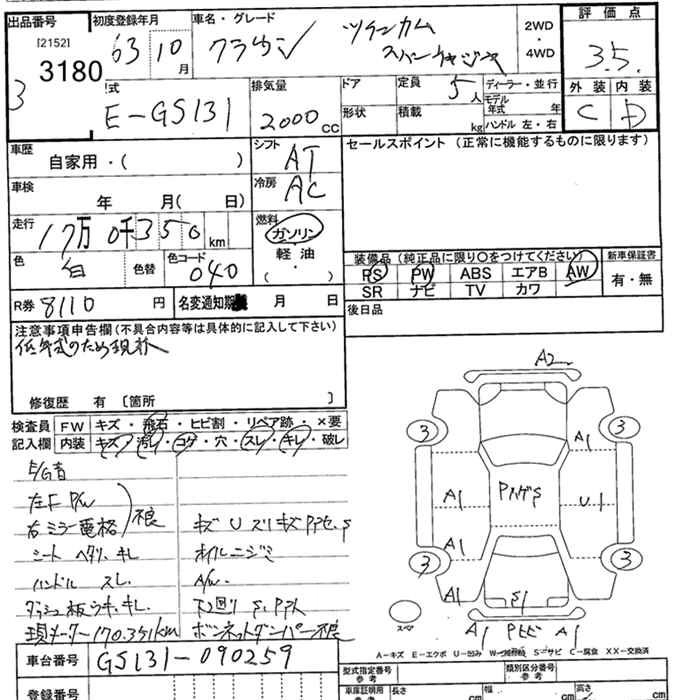 出品番号
[2152]
3180
3
初度登録年月
63 10 月
車名・グレード
クラウン ツインカム
スーパーチャージャー
2WD
・
4WD
評価点
3.5.
外装 内装
C D
型式
E-GS131
排気量
2000 cc
ドア
形状
定員
5 人
積載
kg
ディーラー・並行
モデル年式 年
ハンドル 左・右
車歴
自家用・( )
シフト
AT
セールスポイント (正常に機能するものに限ります)
車検
年 月( 日)
冷房
AC
走行
17万 0千350 km
燃料
ガソリン
軽油
・
( )
色
白
色替
色コード
040
装備品 (純正品に限り○をつけてください)
RS PW ABS エアB AW
SR ナビ TV カワ
新車保証書
有・無
R券 8110 円
名変通知期 月 日
後日品
注意事項申告欄(不具合内容等は具体的に記入して下さい)
低年式のため現状
修復歴 有 [箇所 ]
検査員
記入欄
FW キズ・飛石・ヒビ割・リペア跡・×要
内装 キズ・汚レ・コゲ・穴・スレ・キレ・破レ
E/G音
左F P/W
右ミラー電格
不良
シート ヘタリ、キレ
ハンドル スレ
ダッシュ板ウキ、キレ
現メーター170.351km
キズ U ズリキズ
オイルニジミ
A/W
下回り S.
ボンネットダンパー不良
A2
3
3
A1
A1
U1
A1
3
3
A1
S1
A1
A1
スペア
A-キズ E-エクボ U-凹み S-サビ C-腐食 XX-交換済
車台番号 GS131-090259
登録番号
型式指定番号
参考
類別区分番号
参考
車庫証明用
参考
長さ
cm
幅
cm
高さ
cm